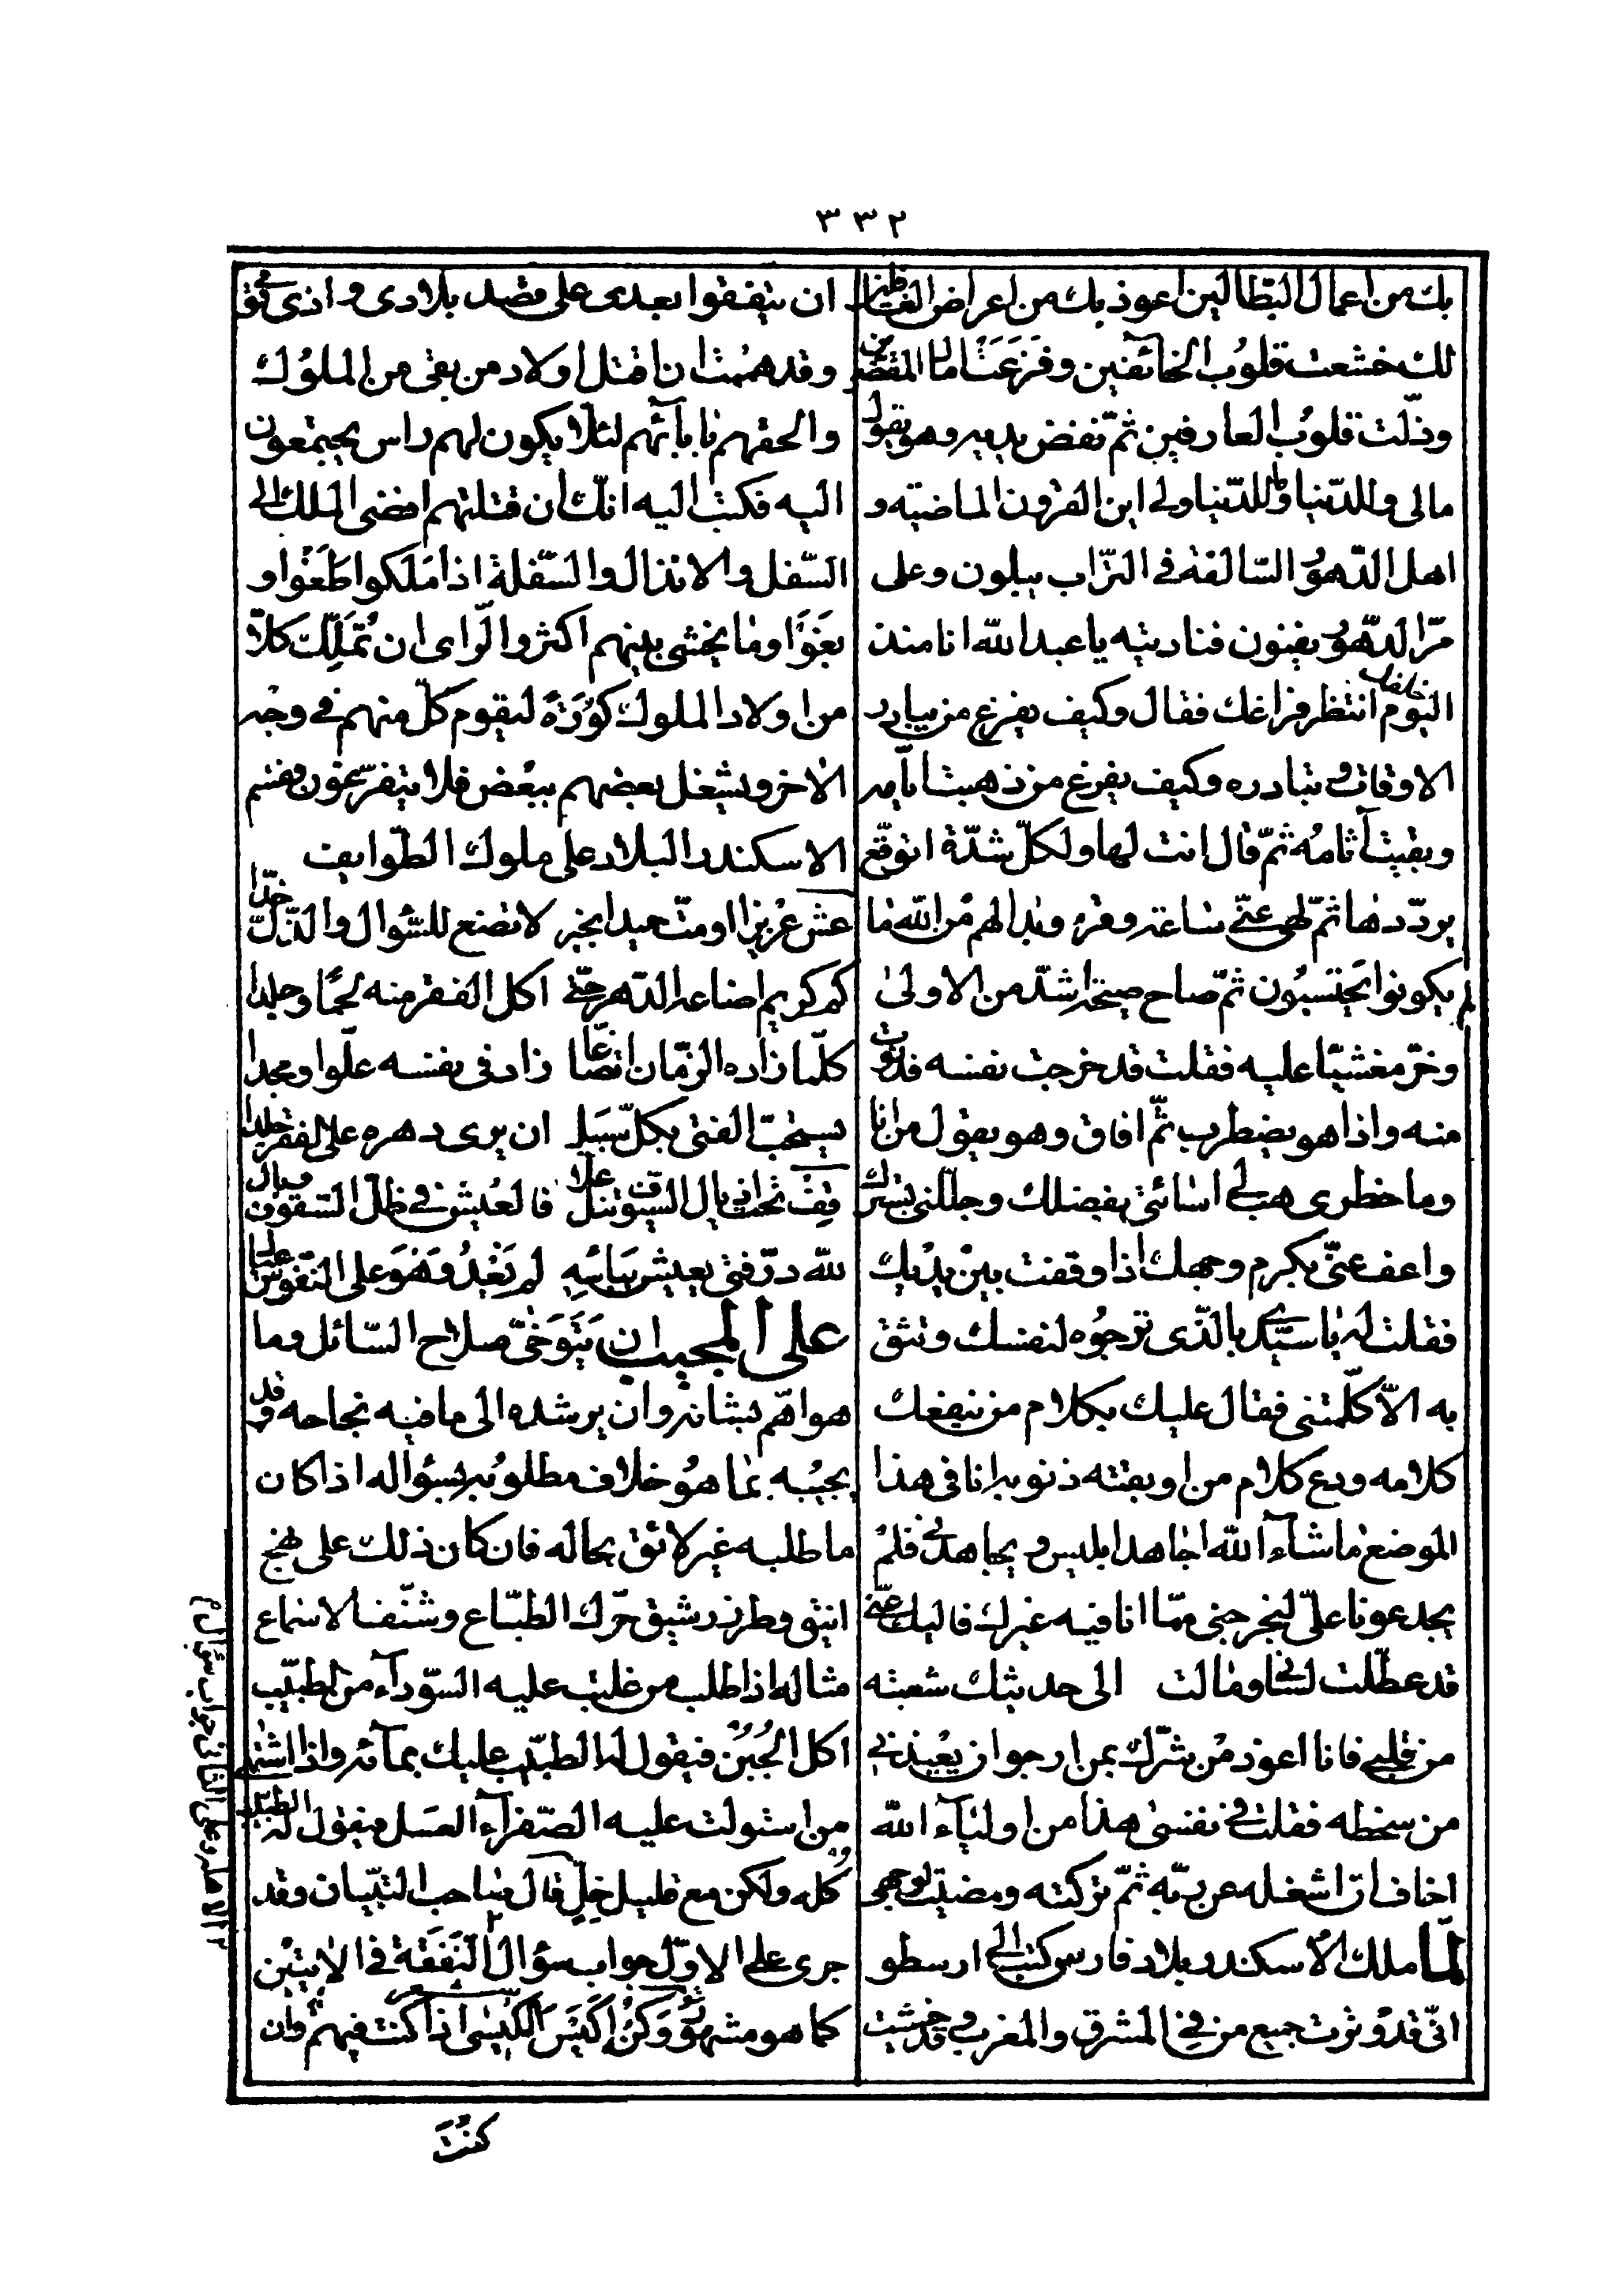 ٣٣٢
بك من اعمال البطالين اعوذ بك من اعراض الغافلين
لك خشعت قلوب الخائفين وفزعت امال المقصرين
وذلّت قلوب العارفين ثمّ نفض يديه وهو يقول
مالى وللدّنيا وللدّنيا ولى اين القرون الماضية و
اهل الدّهور السّالفة فى التراب يبلون وعلى
مرّ الدّهور يفنون فناديته يا عبد الله انا منذ
اليوم خلفك انتظر فراغك فقال وكيف يفرغ من يبادر
الاوقات وتبادره وكيف يفرغ من ذهبت ايّامه
وبقيت آثامه ثمّ قال انت لها ولكلّ شدّة اتوقّع
يردّدها ثمّ لهى عنّى ساعة وقرء وبدا لهم من الله ما
لم يكونوا يحتسبون ثمّ صاح صيحة اشدّ من الاولى
وخرّ مغشيّا عليه فقلت قد خرجت نفسه فدنوت
منه واذا هو يضطرب ثمّ افاق وهو يقول من انا
وما خطرى هب لى اسائتى بفضلك وجلّلنى بسترك
واعف عنّى بكرم وجهك اذا وقفت بين يديك
فقلت له يا سيّدى بالّذى ترجوه لنفسك وتثق
به الاّ كلّمتنى فقال عليك بكلام من ينفعك
كلامه ودع كلام من اوبقته ذنوبه انا فى هذا
الموضع ما شاء الله اجاهد ابليس ويجاهدنى فلم
يجد عونا علىّ ليخرجنى ممّا انا فيه غيرك فاليك عنّى
قد عطّلت لسانى ومالت الى حديثك شعبته
من قلبى فانا اعوذ من شرّك بمن ارجو ان يعيذنى
من سخطه فقلت فى نفسى هذا من اولياء الله
اخاف ان اشغله عن ربّه ثمّ تركته ومضيت لوجهى
لمّا ملك الاسكندر بلاد فارس كتب الى ارسطو
انّى قد وترت جميع من فى المشرق والمغرب وقد خشيت
ان يتفقوا بعدى على قصد بلادى واذى قومى
وقد هممت ان اقتل اولاد من بقى من الملوك
والحقهم بابآئهم لئلّا يكون لهم راس يجتمعون
اليه فكتب اليه انّك ان قتلتهم افضى الملك الى
السّفل والانذال والسّفلة اذا ملكوا طغوا و
بغوا وما يخشى بينهم اكثر والرّاى ان تملّك كلّا
من اولاد الملوك كورة ليقوم كلّ منهم فى وجه
الاخر ويشغل بعضهم ببعض فلا يتفرّغون فقسم
الاسكندر البلاد على ملوك الطّوايف
عش عزيزا او مت حميدا بخير لا تضع للسّوال والذّلّ خدّا
كم كريم اضاعه الدّهر حتّى اكل الفقر منه لحما وجلدا
كلّما زاده الزّمان اتضاعا زاد فى نفسه علوّا ومجدا
يستحبّ الفتى بكلّ سبيل ان يرى دهره على الفقر جلدا
قف تحت اذيال السيوف تنل علا فالعيش فى ظلّ السّقوف وبال
لله درّ فتى يعيش ببأسه لم يغد وهو على النّفوس عيال
على المجيب ان يتوخّى صلاح السّائل وما
هو اهمّ بشانه وان يرشده الى ما فيه نجاحه وقد
يجيبه بما هو خلاف مطلوبه بسؤاله اذا كان
ما طلبه غير لائق بحاله فان كان ذلك على نهج
انيق وطرز رشيق حرّك الطبّاع وشنّف الاسماع
مثاله اذا طلب من غلبت عليه السّودآء من الطبيب
اكل الجبن فيقول له الطبّيب عليك بمآئه واذا اشتهى
من استولت عليه الصّفرآء العسل فيقول له الطبيب
كله ولكن مع قليل خلّ قال صاحب التبيان وقد
جرى على الاوّل جواب سؤال النفقة فى الايتين
كما هو مشهور وكن اكيس الكيسى اذا كنت فيهم وان
كنت